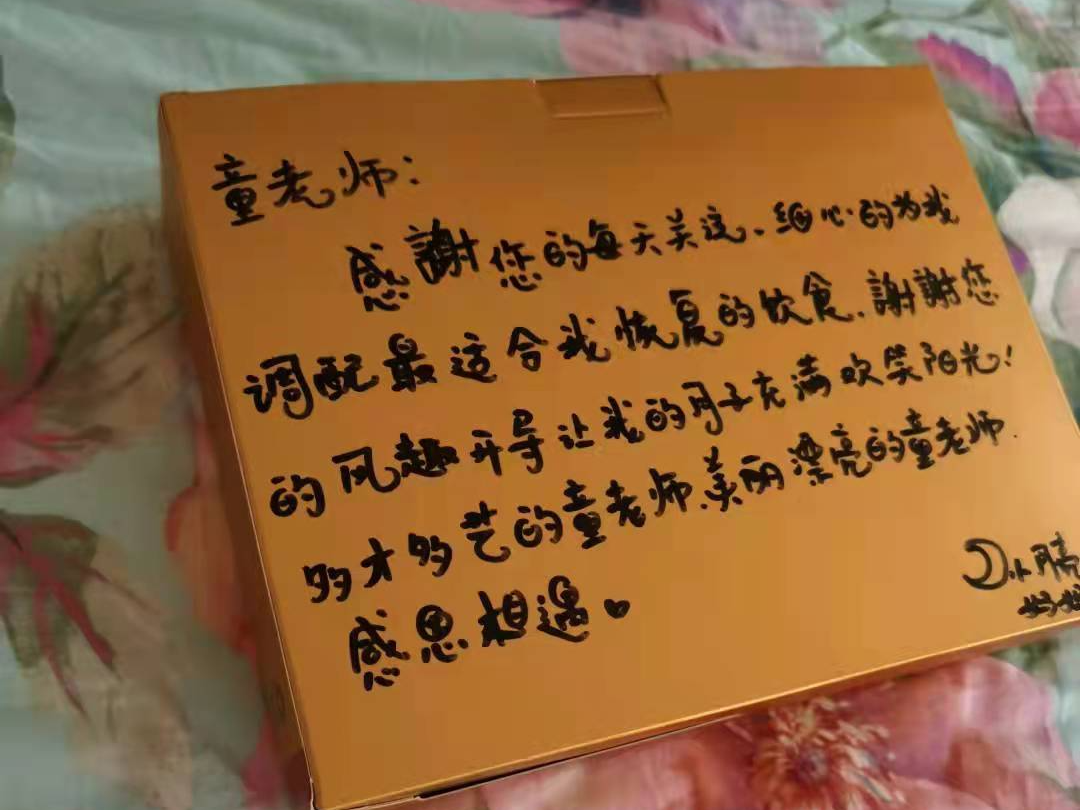 童老师:
感謝您的每天关注、细心的为我
调配最适合我恢复的饮食.謝謝您
的风趣开导让我的月子充满欢笑阳光!
多才多艺的童老师.美丽漂亮的童老师.
感恩相遇。
小月亮
妈妈